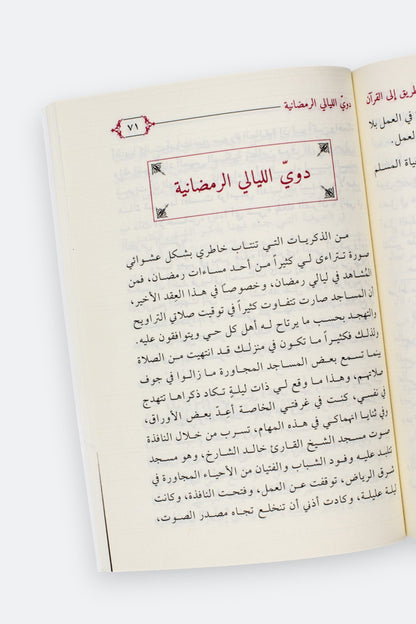 ٧١
دويّ الليالي الرمضانية
دويّ الليالي الرمضانية
من الذكريات التي تنتاب خاطري بشكل عشوائي
صورة تتراءى لي كثيراً من أحد مساءات رمضان، فمن
المُشاهد في ليالي رمضان، وخصوصاً في هذا العِقد الأخير،
أن المساجد صارت تتفاوت كثيراً في توقيت صلاتي التراويح
والتهجد بحسب ما يرتاح له أهل كل حي ويتوافقون عليه.
ولذلك فكثيراً ما تكون في منزلك قد انتهيت من الصلاة
بينما تسمع بعض المساجد المجاورة ما زالوا في جوف
صلاتهم، وهذا ما وقع لي ذات ليلةٍ تكاد ذكراها تتهدج
في نفسي، كنت في غرفتي الخاصة أعدّ بعض الأوراق،
وفي ثنايا انهماكي في هذه المهام، تسرب من خلال النافذة
صوت مسجد الشيخ القارئ خالد الشارخ، وهو مسجد
عليه وفود الشباب والفتيان من الأحياء المجاورة في
شرق الرياض، توقفت عن العمل، وفتحت النافذة، وكانت
ليلة عليلة، وكادت أذني أن تنخلع تجاه مصدر الصوت،
الطريق إلى القرآن
في العمل بلا
العمل.
حياة المسلم